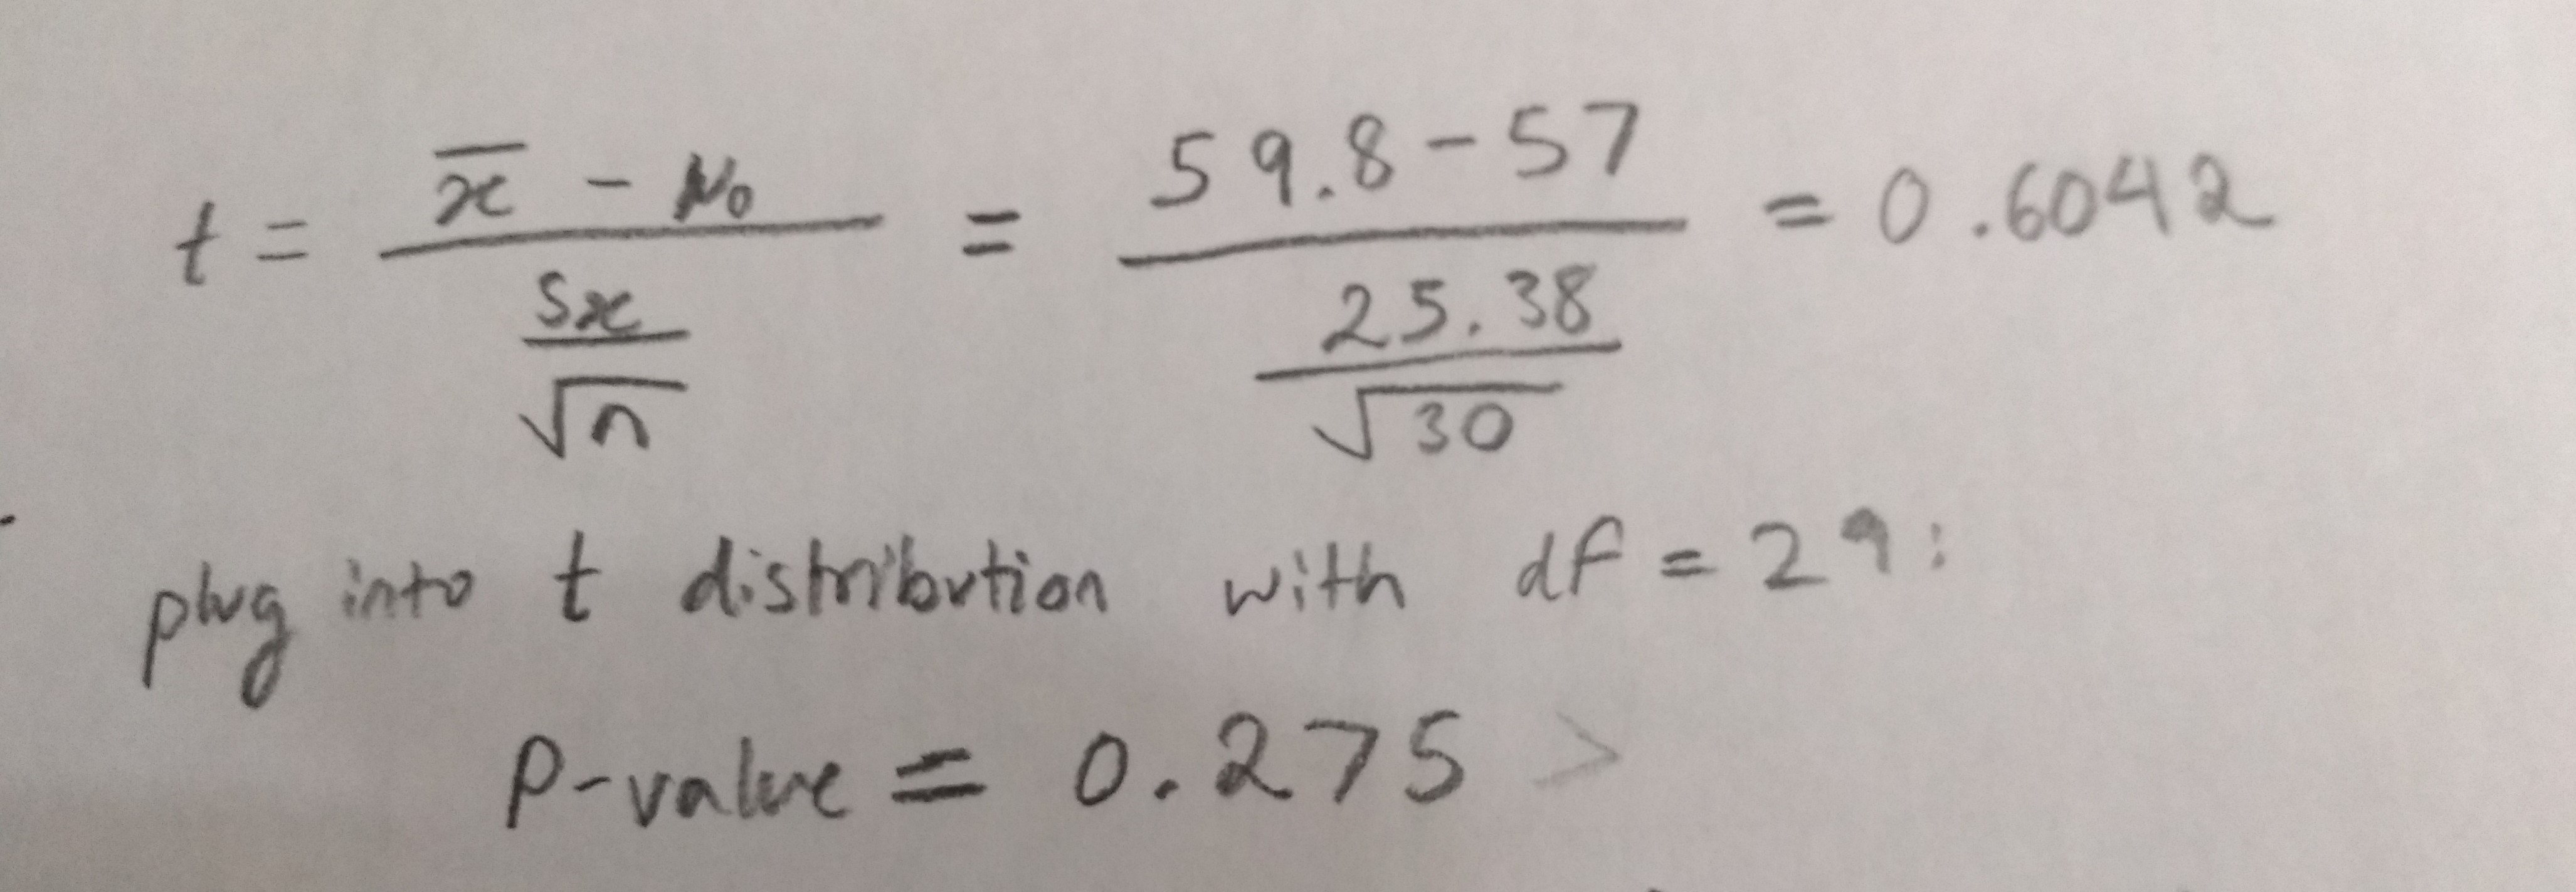 t = (x̄ - μ₀)/(sx/√n) = (59.8-57)/(25.38/√30) = 0.6042
plug into t distribution with df = 29:
P-value = 0.275 >